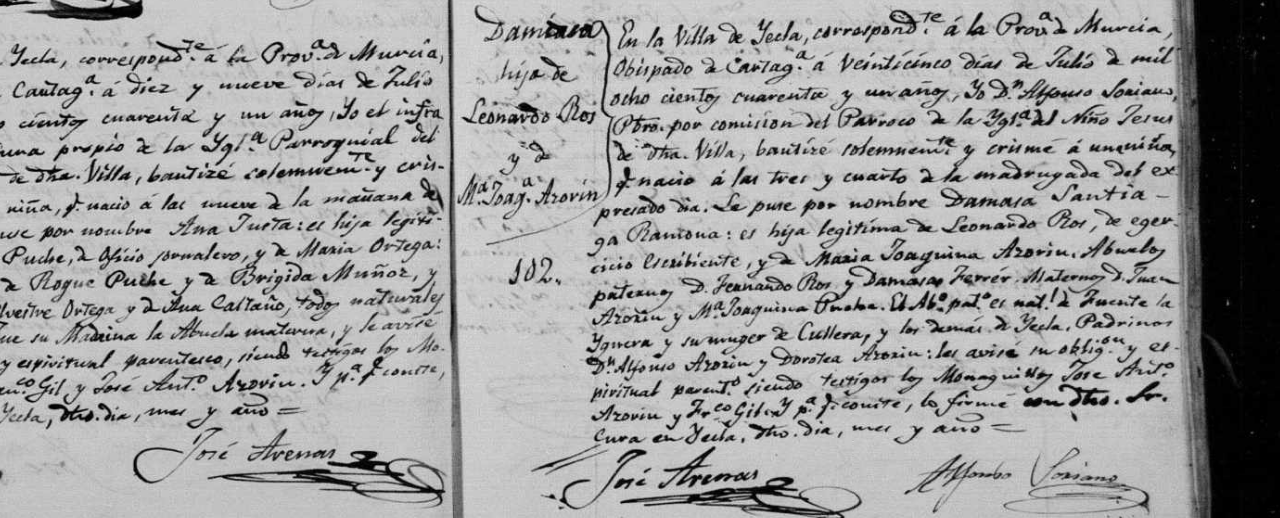 Yecla, correspond.te á la Prov.a d Murcia,
Cartag.a á diez y nueve dias de Julio
cientos cuarenta y un años, Yo el infra
cura propio de la Ygl.a Parroquial del
de dha. Villa, bautizé solemnem.te y cris-
niña, q. nacio á las nueve de la mañana de
use por nombre Ana Justa: es hija legiti-
Puche, de Oficio jornalero, y de Maria Ortega:
de Roque Puche y de Brigida Muñoz, y
Silvestre Ortega y d Ana Castaño, todos naturales
fue su Madrina la Abuela materna, y le avisé
y espiritual parentesco, siendo testigos los Mo-
Gil y José Ant.o Azorin. Y p.a q. conste,
Yecla, dho. dia, mes y año =
José Arenas
Damiana
hija de
Leonardo Ros
y de
M.a Joaq.a Azorin
102.
En la Villa de Yecla, correspond.te á la Prov.a d Murcia,
Obispado d Cartag.a á veinticinco dias de Julio de mil
ocho cientos cuarenta y un años, Yo D.n Alfonso Soriano,
Pbro. por comision del Parroco de la Ygl.a del Niño Jesus
de dha. Villa, bautizé solemnem.te y crismé á una niña,
q. nacio á las tres y cuarto de la madrugada del ex-
presado dia. Le puse por nombre Damasa Santia-
ga Ramona: es hija legitima de Leonardo Ros, de eger-
cicio Escribiente, y de Maria Joaquina Azorin. Abuelos
paternos D. Fernando Ros y Damasa Ferrér. Maternos D. Juan
Azorin y M.a Joaquina Puche. El Ab.o pat.o es nat.l d Fuente la
Yguera y su muger de Cullera, y los demás de Yecla. Padrinos
D.n Alfonso Azorin y Dorotea Azorin: les avisé su oblig.on y es-
piritual parent.o siendo testigos los Monaguillos José Ant.o
Azorin y Fr.co Gil. Y p.a q. conste, lo firmé con dho. Sr.
Cura en Yecla, dho. dia, mes y año =
José Arenas
Alfonso Soriano